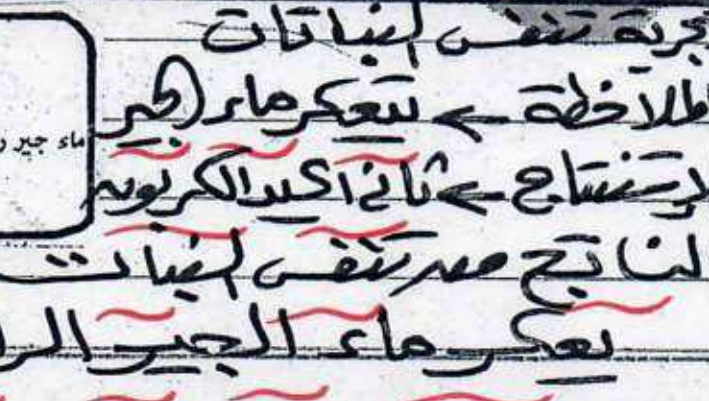 تجربة تنفس النباتات
الملاحظة ← تعكر ماء الجير
ماء جير ر
الإستنتاج ← ثاني اكسيد الكربون
الناتج من تنفس النبات
يعكر ماء الجير الرا